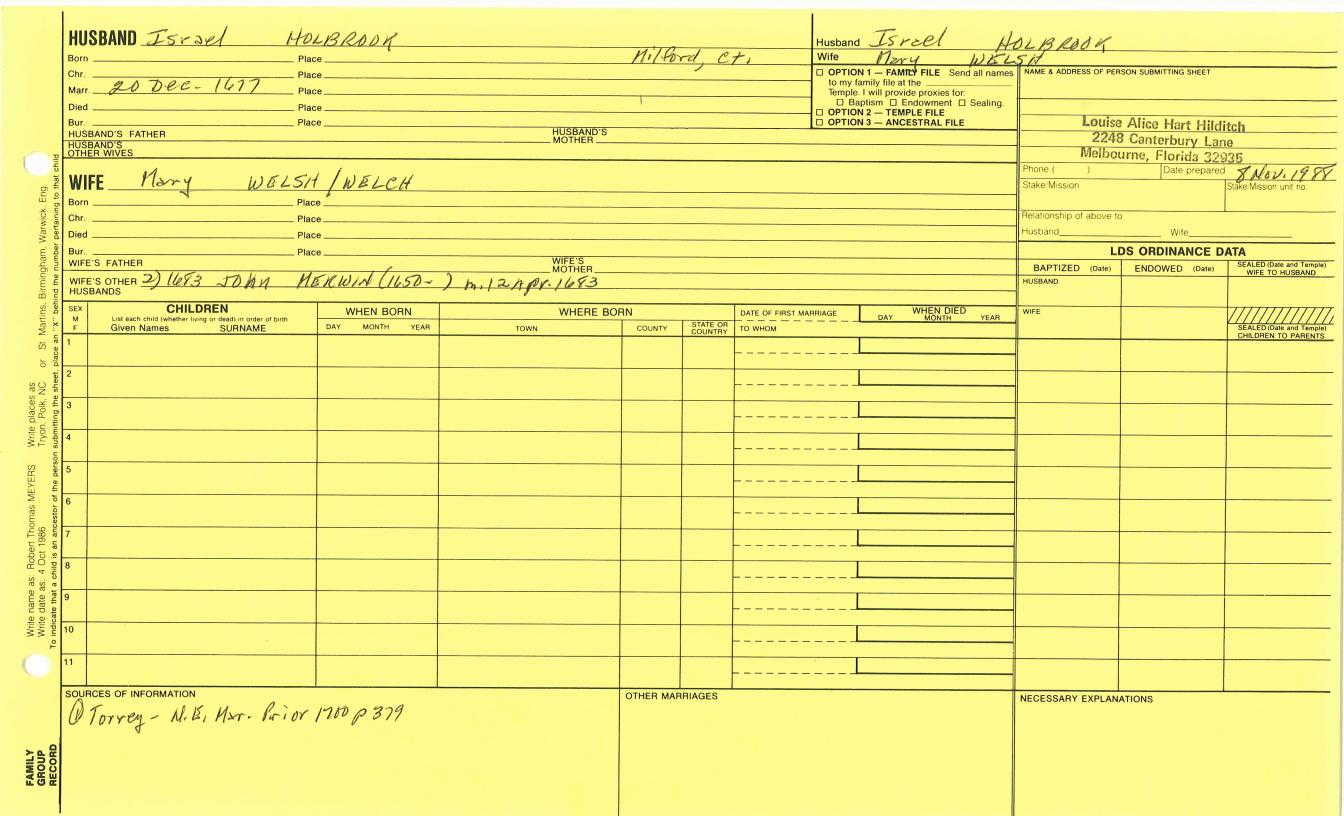 HUSBAND Israel HOLBROOK
Born Place Milford, Ct.
Chr. Place
Marr. 20 Dec. 1677 Place
Died Place
Bur. Place
HUSBAND'S FATHER HUSBAND'S MOTHER
HUSBAND'S OTHER WIVES
Husband Israel HOLBROOK
Wife Mary WELSH
☐ OPTION 1 — FAMILY FILE Send all names
to my family file at the
Temple. I will provide proxies for:
☐ Baptism ☐ Endowment ☐ Sealing.
☐ OPTION 2 — TEMPLE FILE
☐ OPTION 3 — ANCESTRAL FILE
NAME & ADDRESS OF PERSON SUBMITTING SHEET
Louise Alice Hart Hilditch
2248 Canterbury Lane
Melbourne, Florida 32935
Phone ( ) Date prepared 8 Nov. 1988
Stake/Mission Stake/Mission unit no.
Relationship of above to
Husband Wife
WIFE Mary WELSH/WELCH
Born Place
Chr. Place
Died Place
Bur. Place
WIFE'S FATHER WIFE'S MOTHER
WIFE'S OTHER HUSBANDS 2) 1683 JOHN MERWIN (1650- ) m. 12 Apr. 1683
LDS ORDINANCE DATA
BAPTIZED (Date) ENDOWED (Date) SEALED (Date and Temple) WIFE TO HUSBAND
HUSBAND
WIFE
SEALED (Date and Temple) CHILDREN TO PARENTS
SEX M F
CHILDREN
List each child (whether living or dead) in order of birth
Given Names SURNAME
WHEN BORN
DAY MONTH YEAR
WHERE BORN
TOWN COUNTY STATE OR COUNTRY
DATE OF FIRST MARRIAGE
TO WHOM
WHEN DIED
DAY MONTH YEAR
1
2
3
4
5
6
7
8
9
10
11
SOURCES OF INFORMATION
① Torrey - N.E. Mar. Prior 1700 p 379
OTHER MARRIAGES
NECESSARY EXPLANATIONS
FAMILY GROUP RECORD
Write name as: Robert Thomas MEYERS Write places as: Tryon, Polk, NC or St. Martins, Birmingham, Warwick, Eng.
Write date as: 4 Oct 1986
To indicate that a child is an ancestor of the person submitting the sheet, place an "X" behind the number pertaining to that child